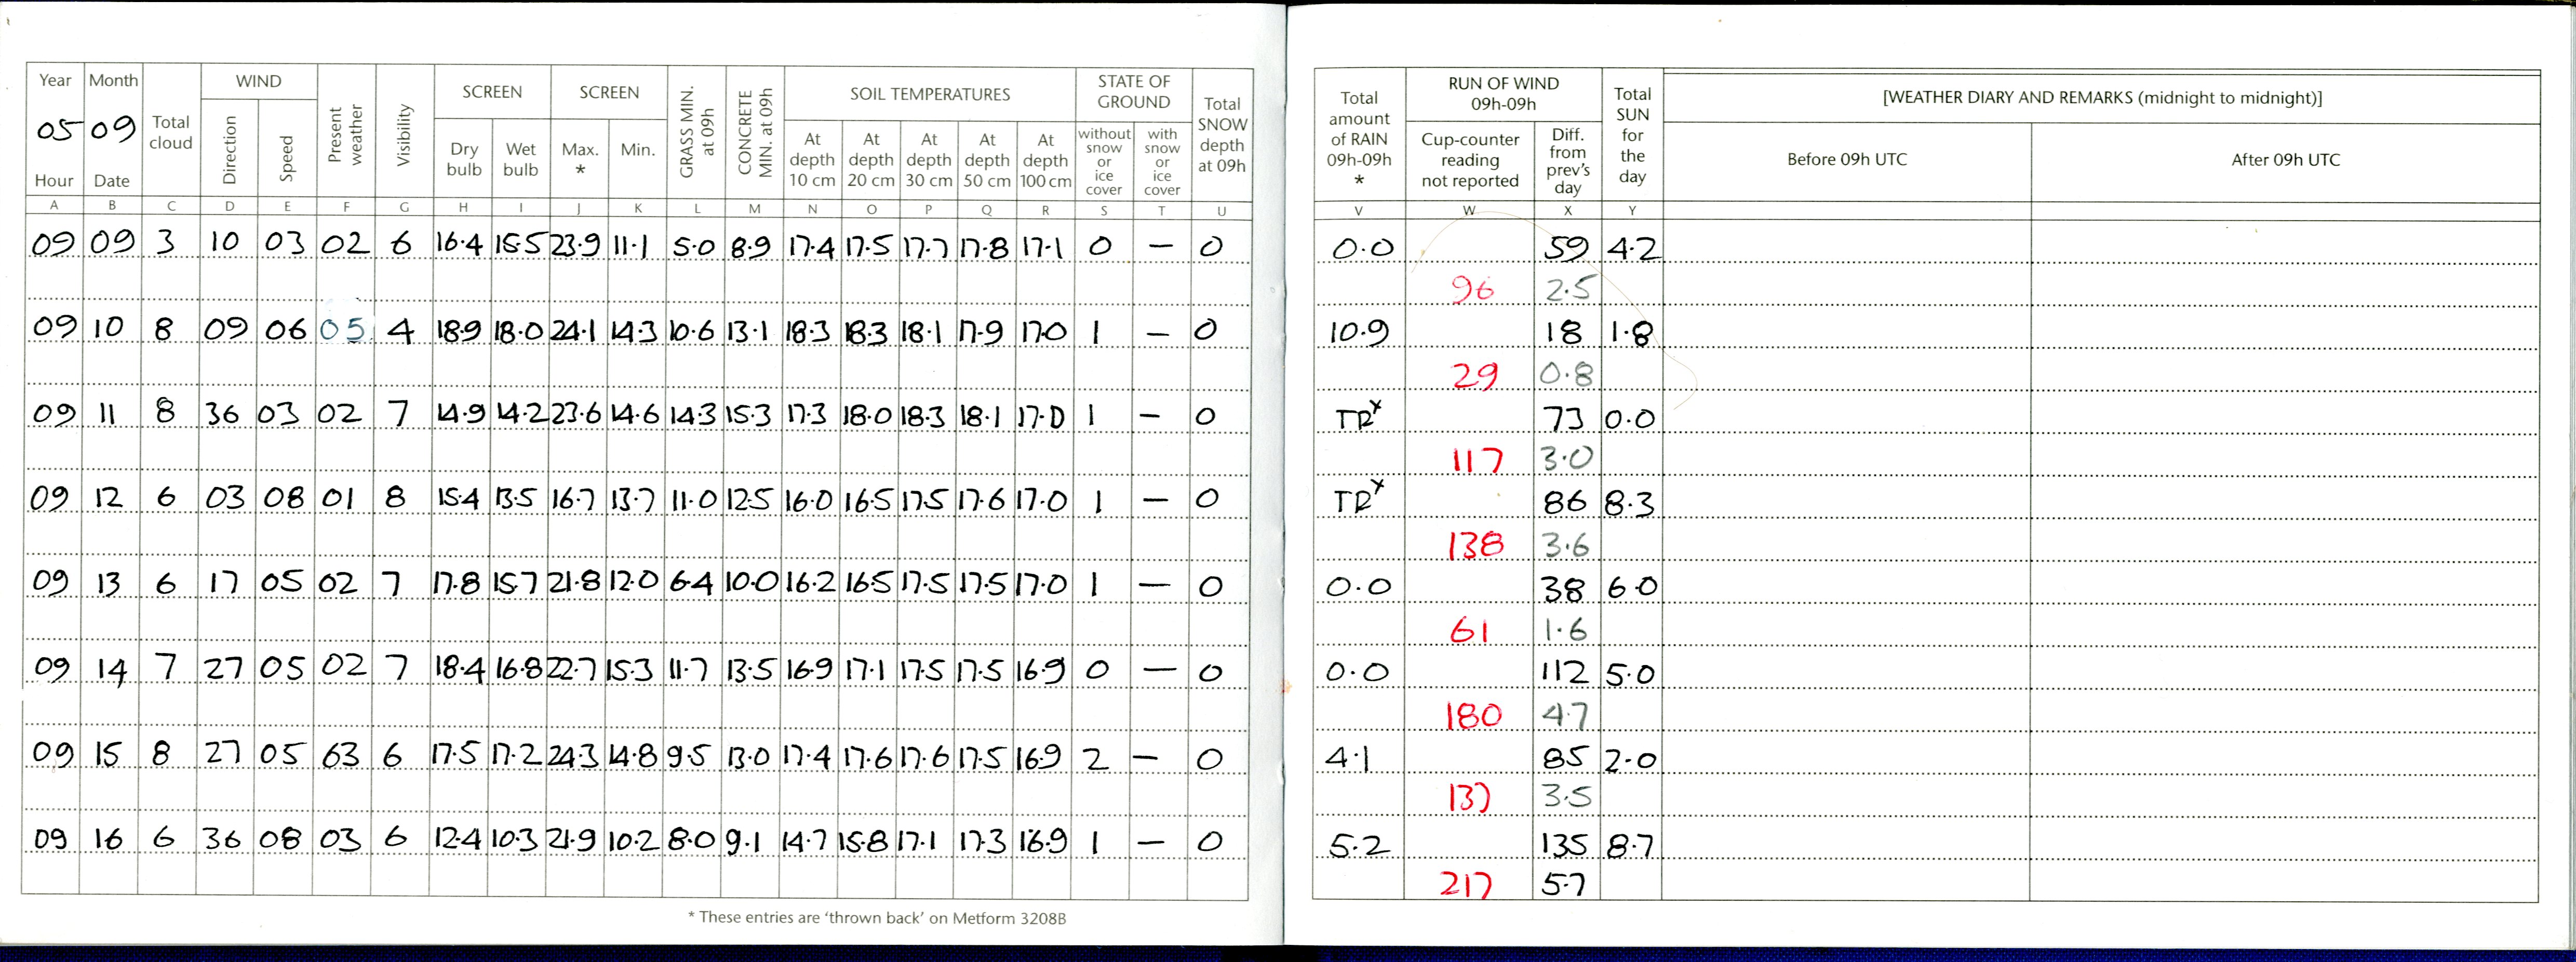 Year Month Total cloud WIND Present weather Visibility SCREEN SCREEN GRASS MIN. at 09h CONCRETE MIN. at 09h SOIL TEMPERATURES STATE OF GROUND Total SNOW depth at 09h
05 09 Direction Speed Dry bulb Wet bulb Max. * Min. At depth 10 cm At depth 20 cm At depth 30 cm At depth 50 cm At depth 100 cm without snow or ice cover with snow or ice cover
Hour Date
A B C D E F G H I J K L M N O P Q R S T U
09 09 3 10 03 02 6 16.4 15.5 23.9 11.1 5.0 8.9 17.4 17.5 17.7 17.8 17.1 0 — 0
09 10 8 09 06 05 4 18.9 18.0 24.1 14.3 10.6 13.1 18.3 18.3 18.1 17.9 17.0 1 — 0
09 11 8 36 03 02 7 14.9 14.2 23.6 14.6 14.3 15.3 17.3 18.0 18.3 18.1 17.0 1 — 0
09 12 6 03 08 01 8 15.4 13.5 16.7 13.7 11.0 12.5 16.0 16.5 17.5 17.6 17.0 1 — 0
09 13 6 17 05 02 7 17.8 15.7 21.8 12.0 6.4 10.0 16.2 16.5 17.5 17.5 17.0 1 — 0
09 14 7 27 05 02 7 18.4 16.8 22.7 15.3 11.7 13.5 16.9 17.1 17.5 17.5 16.9 0 — 0
09 15 8 27 05 63 6 17.5 17.2 24.3 14.8 9.5 13.0 17.4 17.6 17.6 17.5 16.9 2 — 0
09 16 6 36 08 03 6 12.4 10.3 21.9 10.2 8.0 9.1 14.7 15.8 17.1 17.3 16.9 1 — 0
* These entries are 'thrown back' on Metform 3208B
Total amount of RAIN 09h-09h * RUN OF WIND 09h-09h Total SUN for the day [WEATHER DIARY AND REMARKS (midnight to midnight)]
Cup-counter reading not reported Diff. from prev's day Before 09h UTC After 09h UTC
V W X Y
0.0 59 4.2
96 2.5
10.9 18 1.8
29 0.8
TR x 73 0.0
117 3.0
TR x 86 8.3
138 3.6
0.0 38 6.0
61 1.6
0.0 112 5.0
180 4.7
4.1 85 2.0
137 3.5
5.2 135 8.7
217 5.7